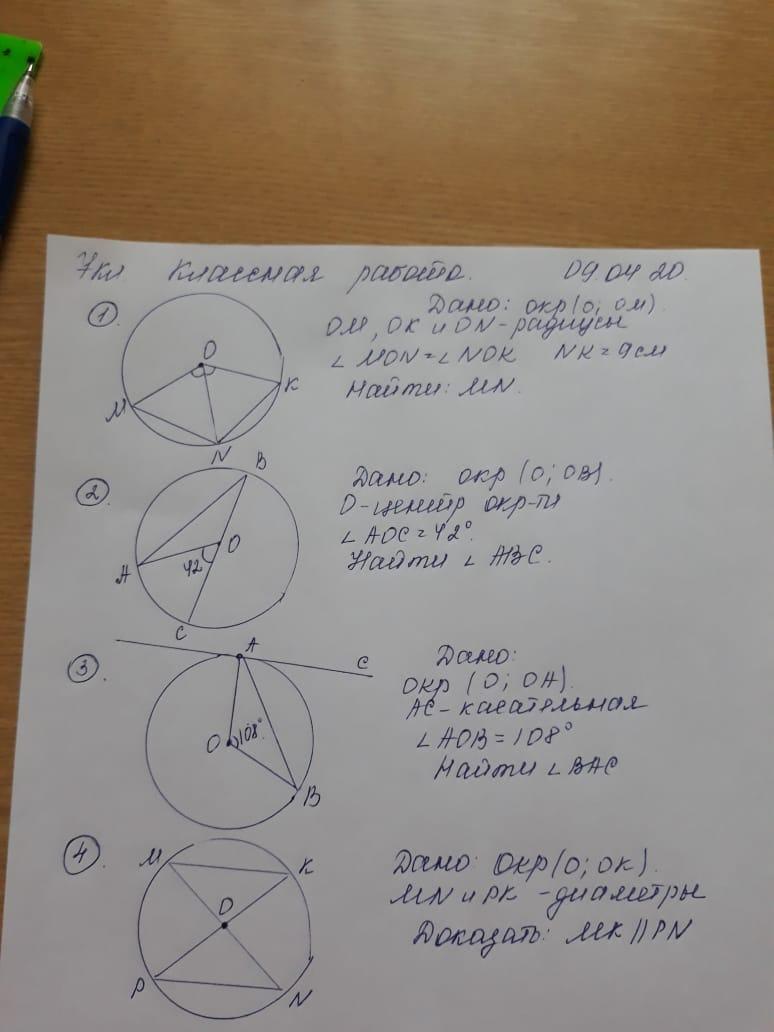 7кл Классная работа. 09.04 20.
1. Дано: окр(О; ОМ).
ОМ, ОК и ОN - радиусы
∠ MON = ∠ NOK NK = 9см
Найти: MN.
O
M
K
N
2. Дано: окр (О; ОВ).
О - центр окр-ти
∠ АОС = 42°.
Найти ∠ АВС.
B
O
A
42
C
3. Дано:
Окр (О; ОА).
АС - касательная
∠ АОВ = 108°
Найти ∠ ВАС
A
C
O
108°.
B
4. Дано: Окр(О; ОК).
MN и РК - диаметры
Доказать: МК || PN
M
K
O
P
N